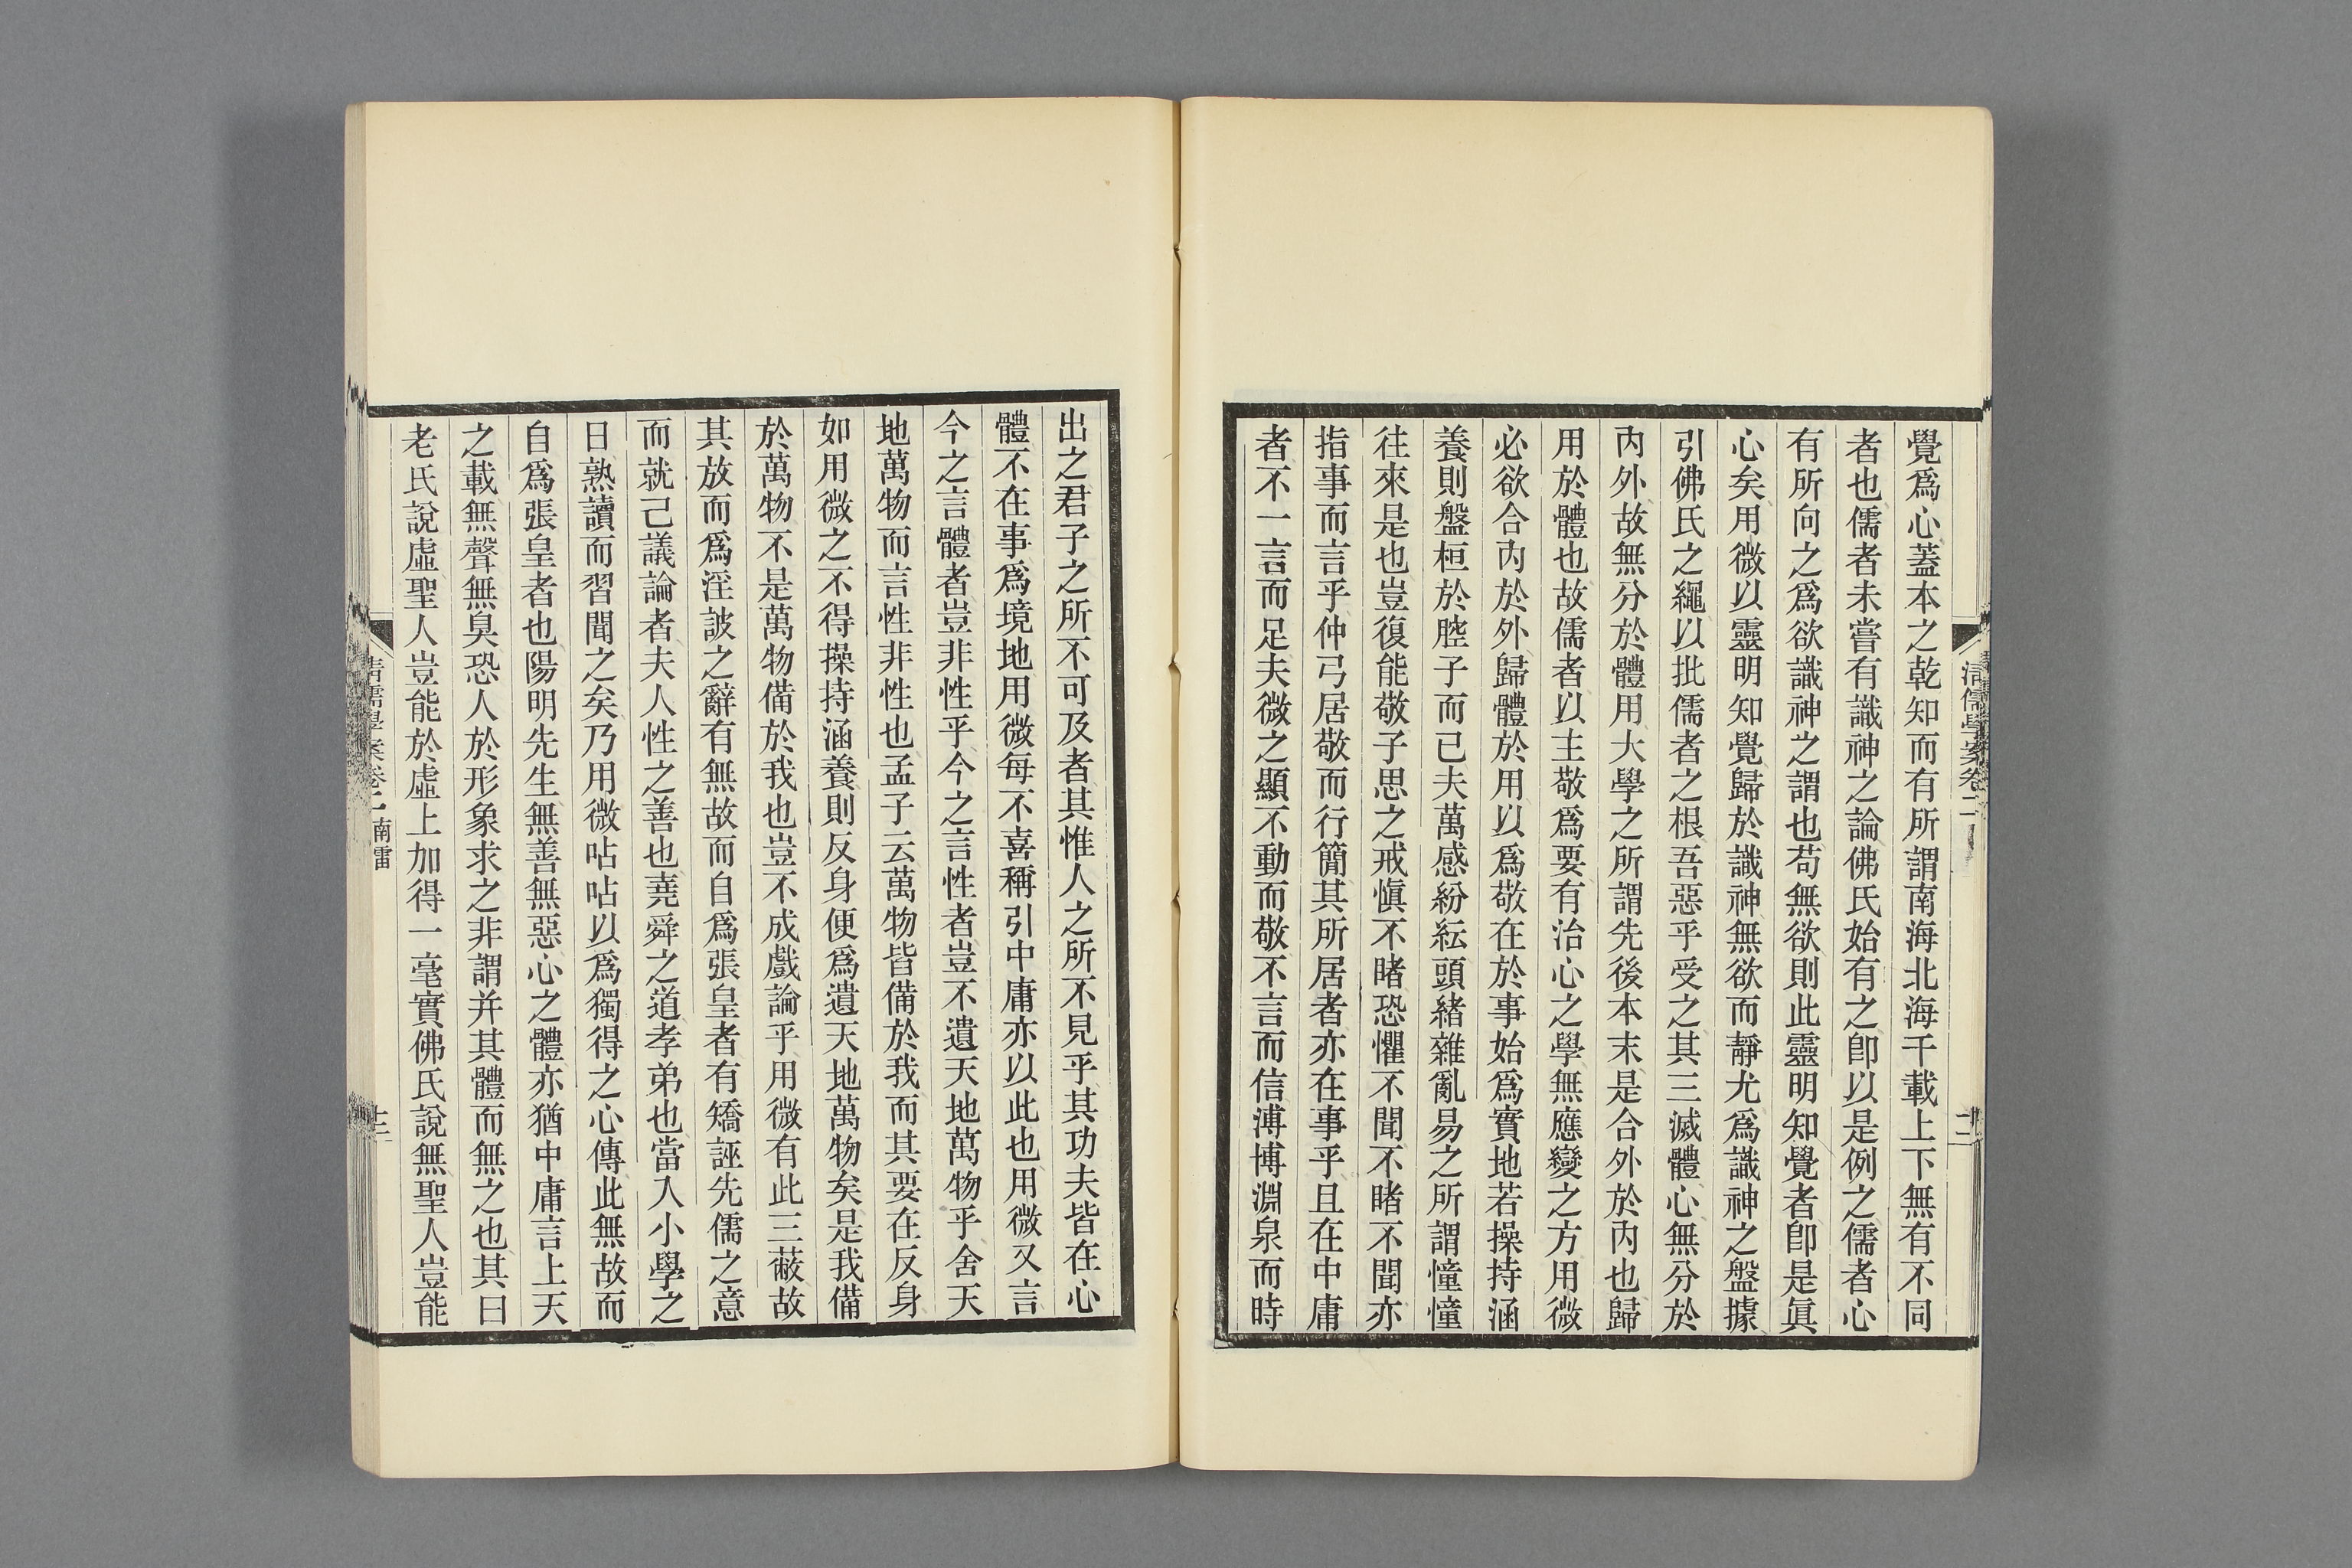 覺爲心蓋本之乾知而有所謂南海北海千載上下無有不同
者也儒者未嘗有識神之論佛氏始有之卽以是例之儒者心
有所向之爲欲識神之謂也苟無欲則此靈明知覺者卽是眞
心矣用微以靈明知覺歸於識神無欲而靜尤爲識神之盤據
引佛氏之繩以批儒者之根吾惡乎受之其三滅體心無分於
內外故無分於體用大學之所謂先後本末是合外於內也歸
用於體也故儒者以主敬爲要有治心之學無應變之方用微
必欲合內於外歸體於用以爲敬在於事始爲實地若操持涵
養則盤桓於腔子而已夫萬感紛紜頭緒雜亂易之所謂憧憧
往來是也豈復能敬子思之戒愼不睹恐懼不聞不睹不聞亦
指事而言乎仲弓居敬而行簡其所居者亦在事乎且在中庸
者不一言而足夫微之顯不動而敬不言而信溥博淵泉而時
清儒學案卷二
出之君子之所不可及者其惟人之所不見乎其功夫皆在心
體不在事爲境地用微每不喜稱引中庸亦以此也用微又言
今之言體者豈非性乎今之言性者豈不遺天地萬物乎舍天
地萬物而言性非性也孟子云萬物皆備於我而其要在反身
如用微之不得操持涵養則反身便爲遺天地萬物矣是我備
於萬物不是萬物備於我也豈不成戲論乎用微有此三蔽故
其放而爲淫詖之辭有無故而自爲張皇者有矯誣先儒之意
而就己議論者夫人性之善也堯舜之道孝弟也當入小學之
日熟讀而習聞之矣乃用微呫呫以爲獨得之心傳此無故而
自爲張皇者也陽明先生無善無惡心之體亦猶中庸言上天
之載無聲無臭恐人於形象求之非謂并其體而無之也其曰
老氏說虛聖人豈能於虛上加得一毫實佛氏說無聖人豈能
清儒學案卷二 南雷